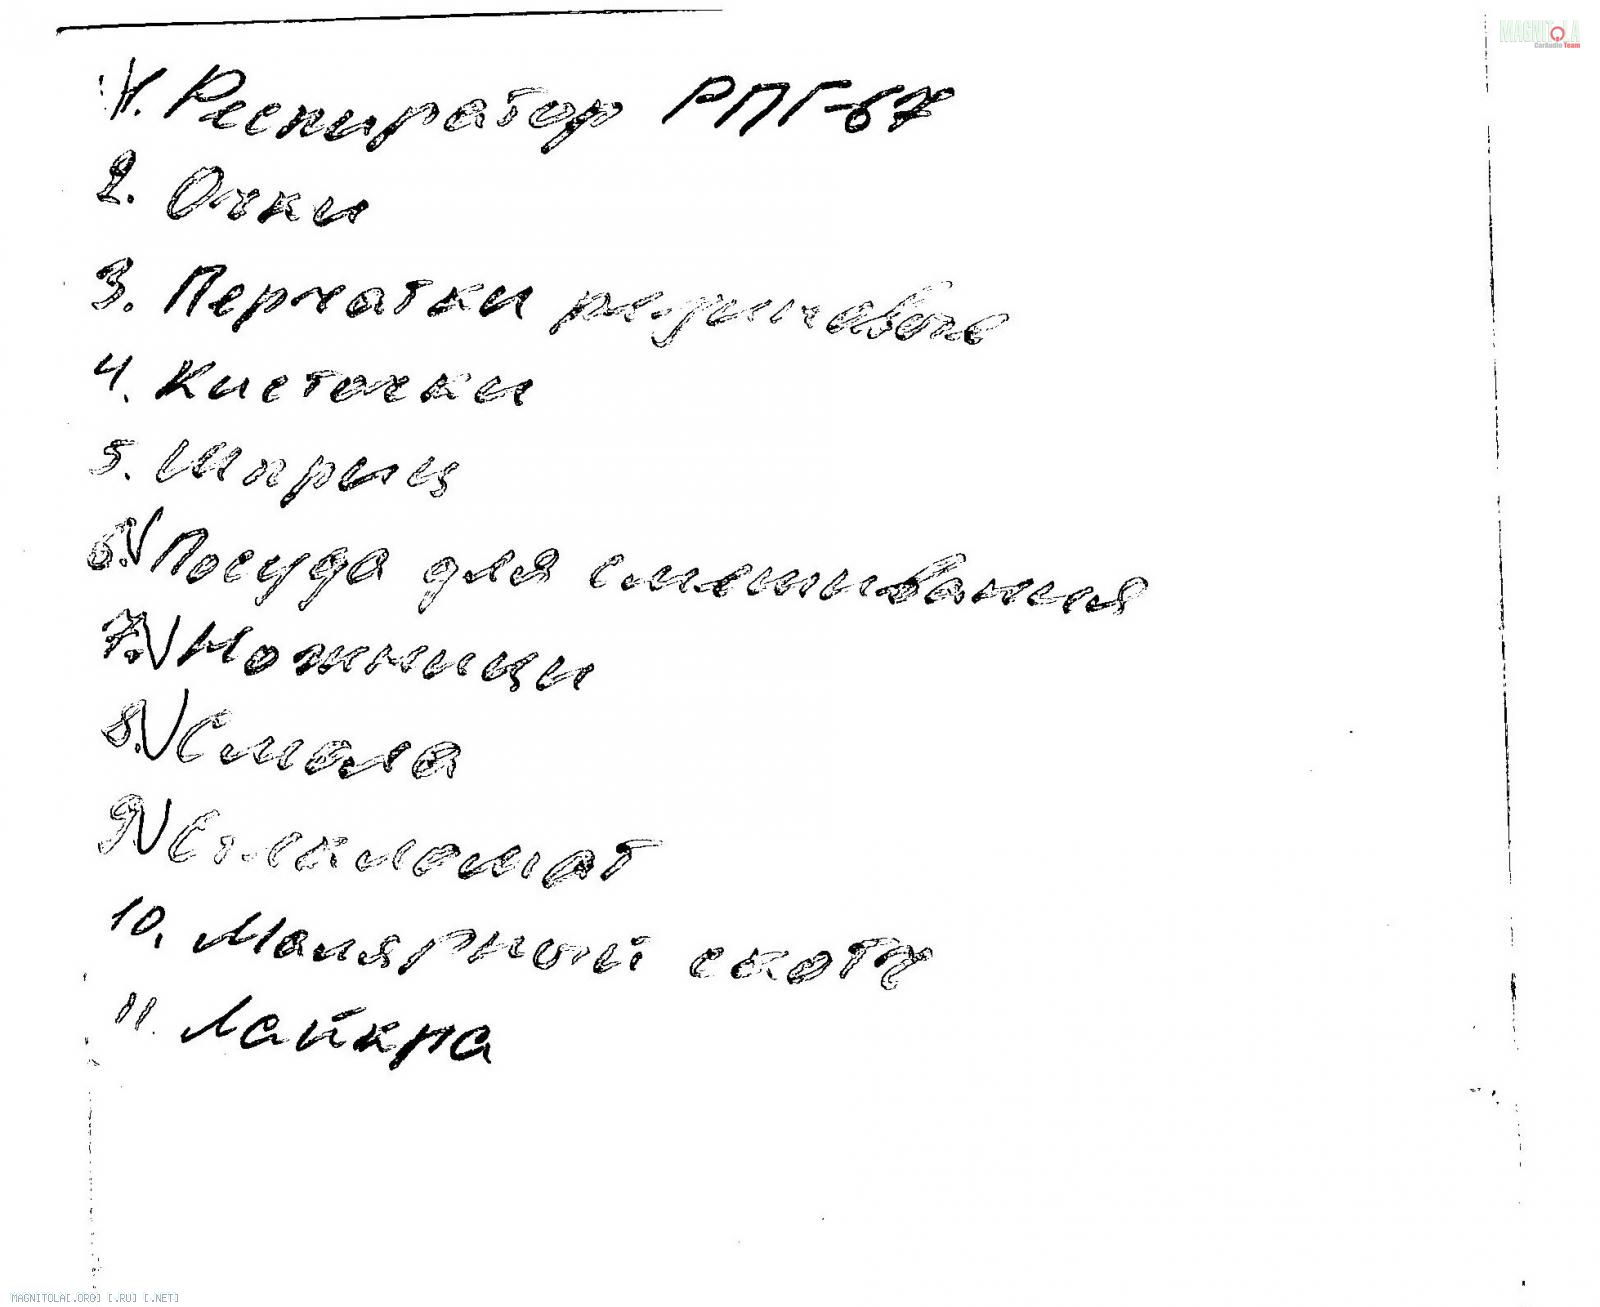 MAGNITOLA
CarAudio Team
1. Респиратор РПГ-67
2. Очки
3. Перчатки резиновые
4. Кисточки
5. Шприц
6. √ Посуда для смешивания
7. √ Ножници
8. √ Смола
9. √ Стекломат
10. Малярный скотч
11. Лайкра
MAGNITOLA[.ORG] [.RU] [.NET]